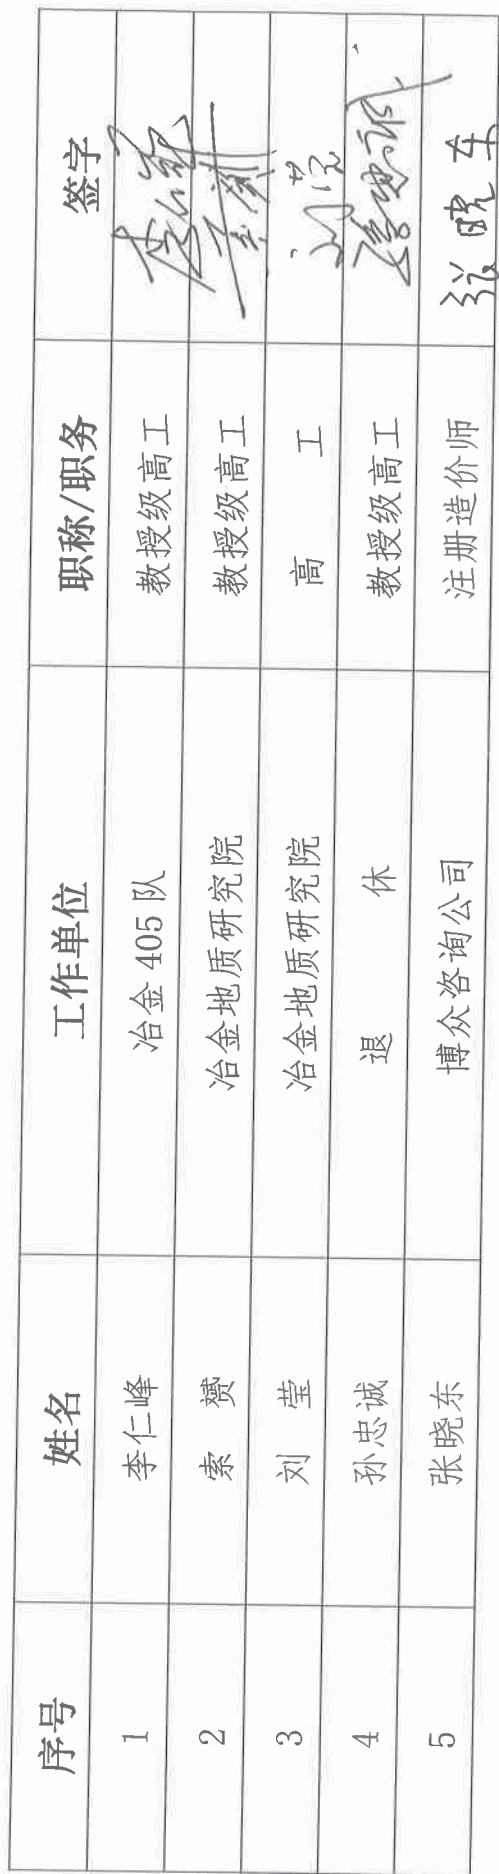 序号 姓名 工作单位 职称/职务 签字
1 李仁峰 冶金 405 队 教授级高工
2 索赟 冶金地质研究院 教授级高工
3 刘莹 冶金地质研究院 高工 刘莹
4 孙忠诚 退休 教授级高工 孙忠诚
5 张晓东 博众咨询公司 注册造价师 张晓东